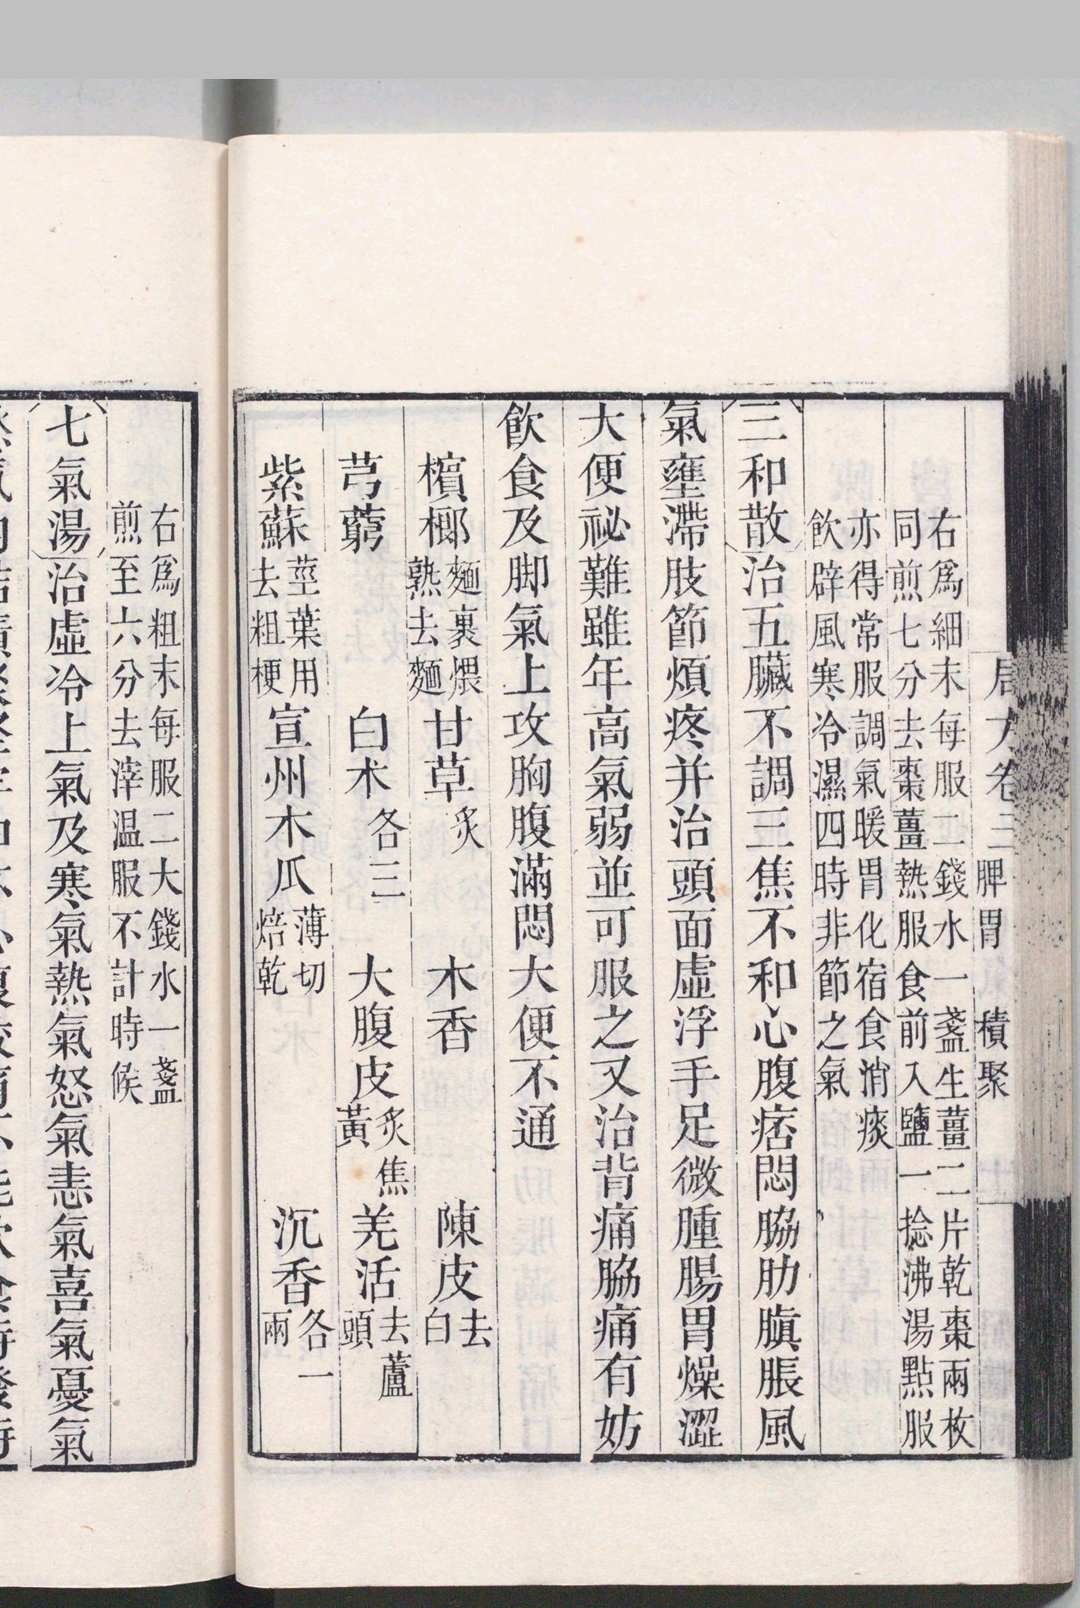 卷三 脾胃 積聚
右爲細末每服二錢水一盞生薑二片乾棗兩枚
同煎七分去棗薑熱服食前入鹽一捻沸湯點服
亦得常服調氣暖胃化宿食消痰
飲辟風寒冷濕四時非節之氣
三和散治五臟不調三焦不和心腹痞悶脇肋䐜脹風
氣壅滯肢節煩疼并治頭面虛浮手足微腫腸胃燥澀
大便祕難雖年高氣弱並可服之又治背痛脇痛有妨
飲食及脚氣上攻胸腹滿悶大便不通
檳榔麵裹煨熟去麵 甘草炙 木香 陳皮去白
芎藭 白术各三 大腹皮炙焦黃 羌活去蘆頭
紫蘇莖葉用去粗梗 宣州木瓜薄切焙乾 沉香各一兩
右爲粗末每服二大錢水一盞
煎至六分去滓溫服不計時候
七氣湯治虛冷上氣及寒氣熱氣怒氣恚氣喜氣憂氣